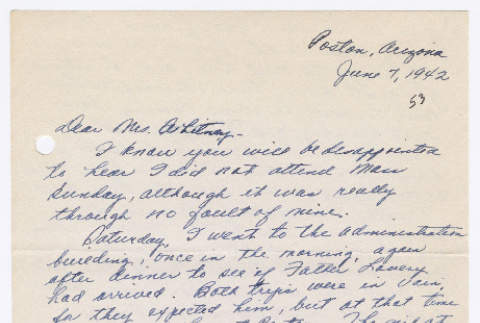 Poston, Arizona
June 7, 1942
53
Dear Mrs. Whitney-
I know you will be disappointed
to hear I did not attend Mass
Sunday, although it was really
through no fault of mine.
Saturday, I went to the administration
building, once in the morning, again
after dinner to see if Father Lavery
had arrived. Both trips were in vain,
for they expected him, but at that time